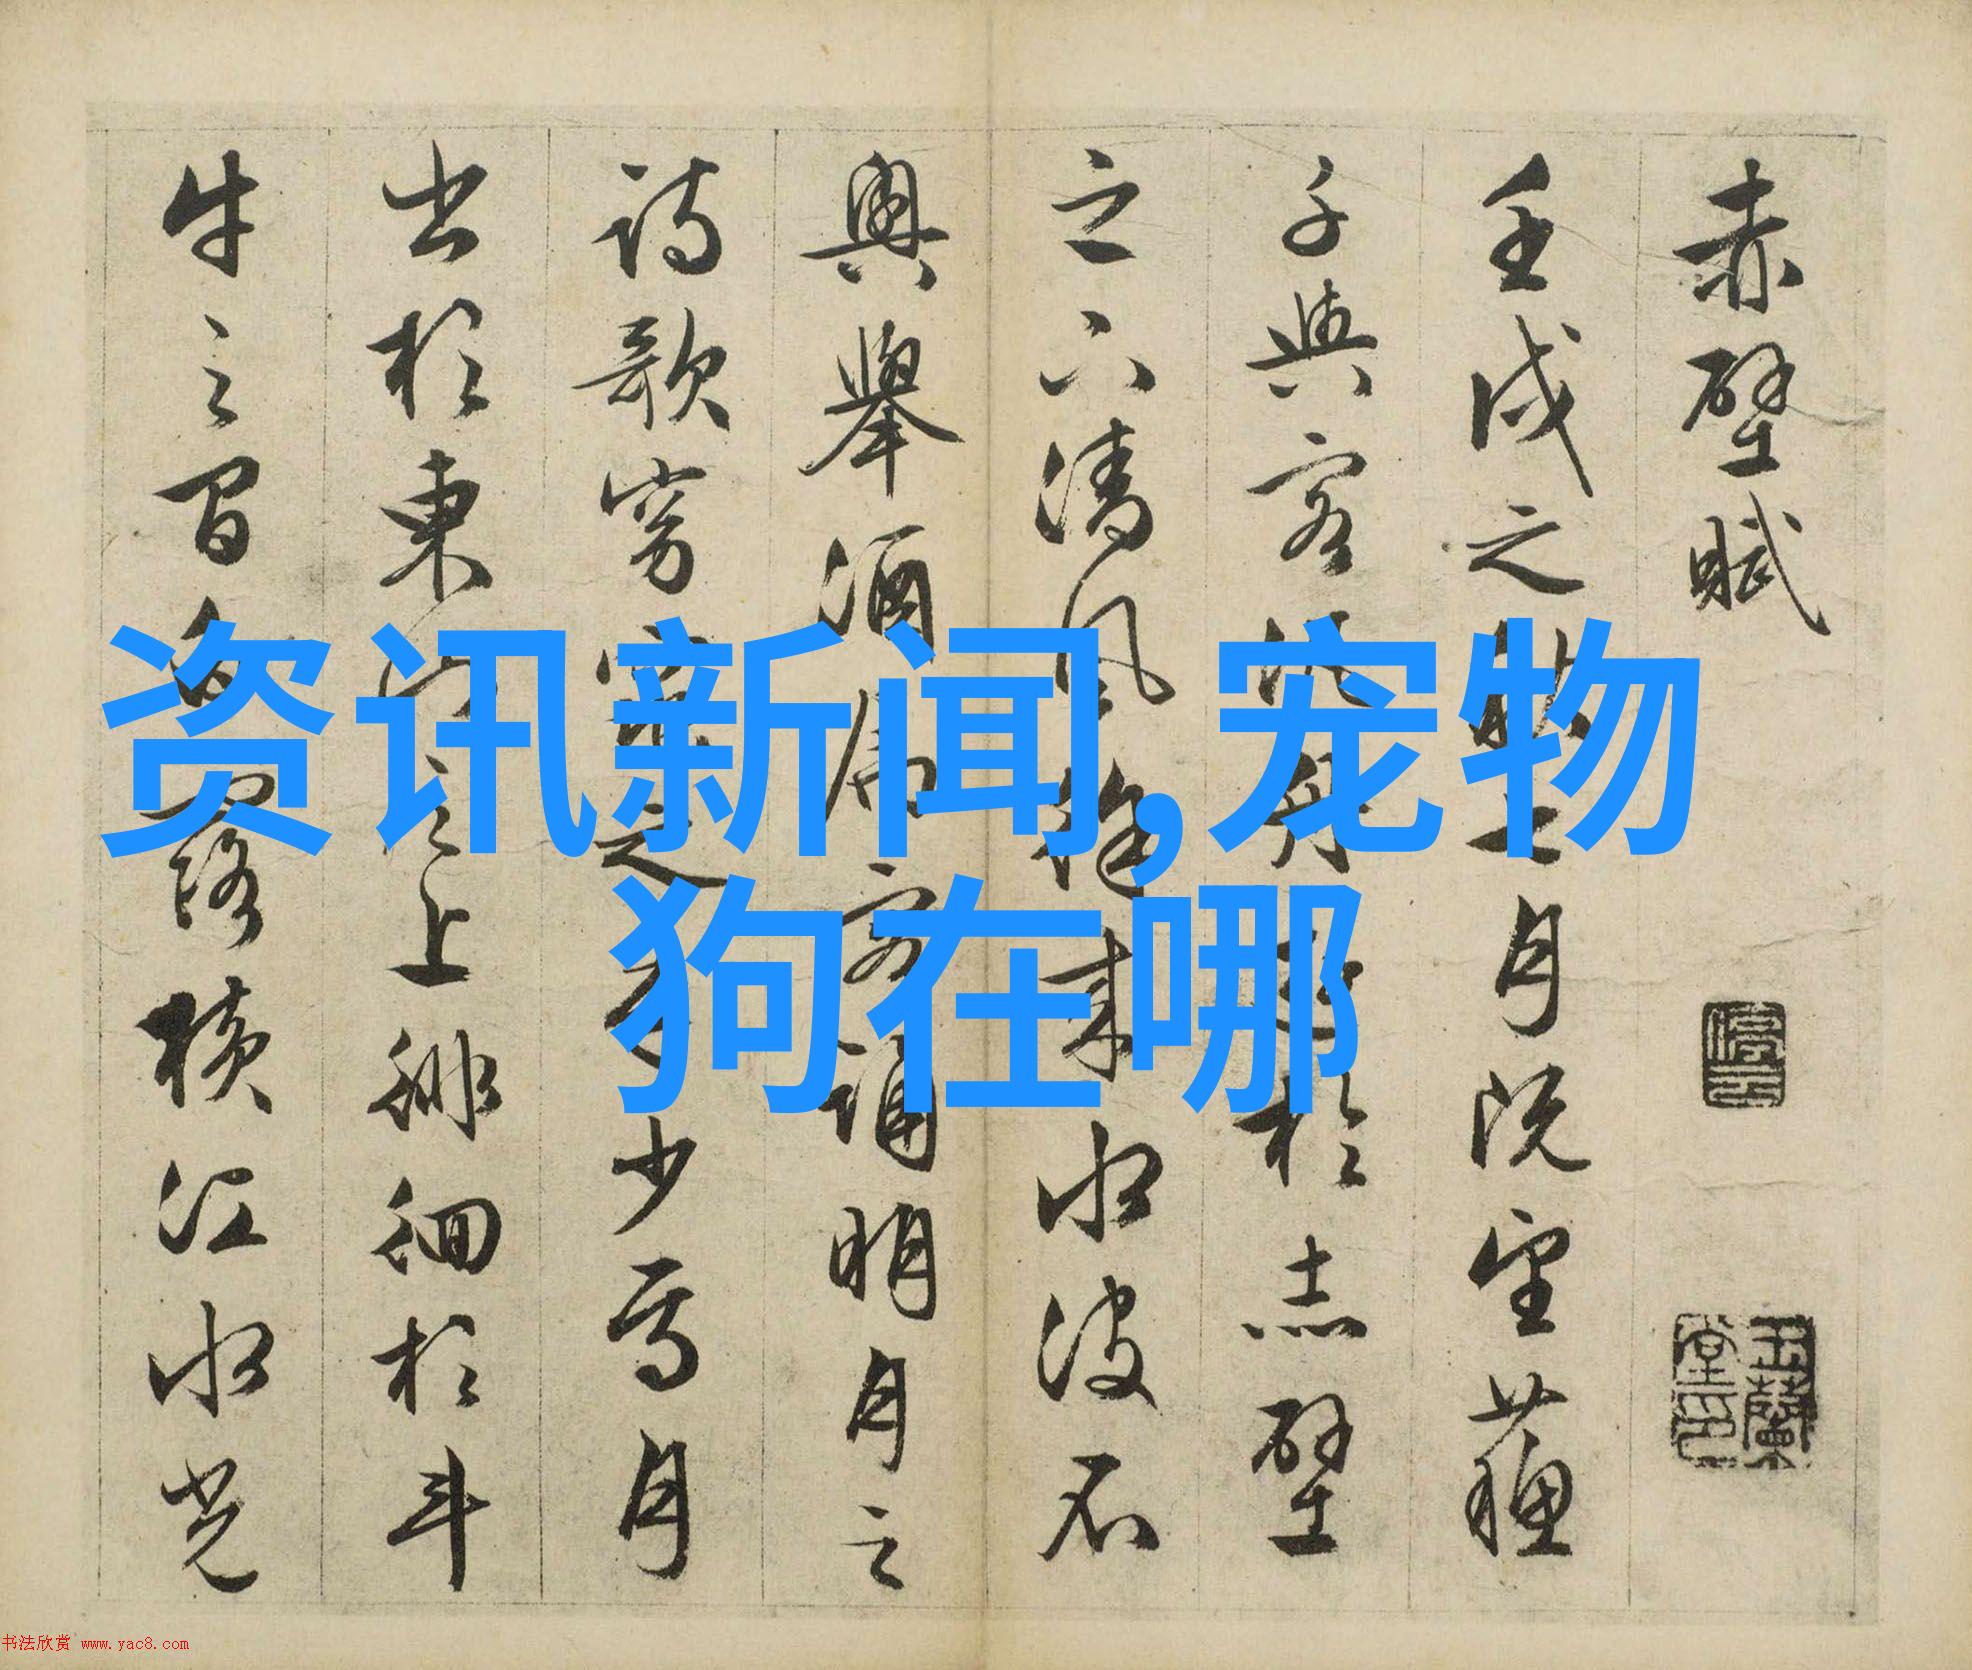 资讯新闻,宠物
狗在哪
赤壁賦
壬戌之秋七月既望蘇
子與客泛舟遊於赤壁
之下清風徐来水波不
興舉酒屬客誦明月之
詩歌窈窕之章少焉月
出於東山之上徘徊於斗
牛之間白露橫江水光
停雲
玉蘭堂印
书法欣赏 www.yac8.com